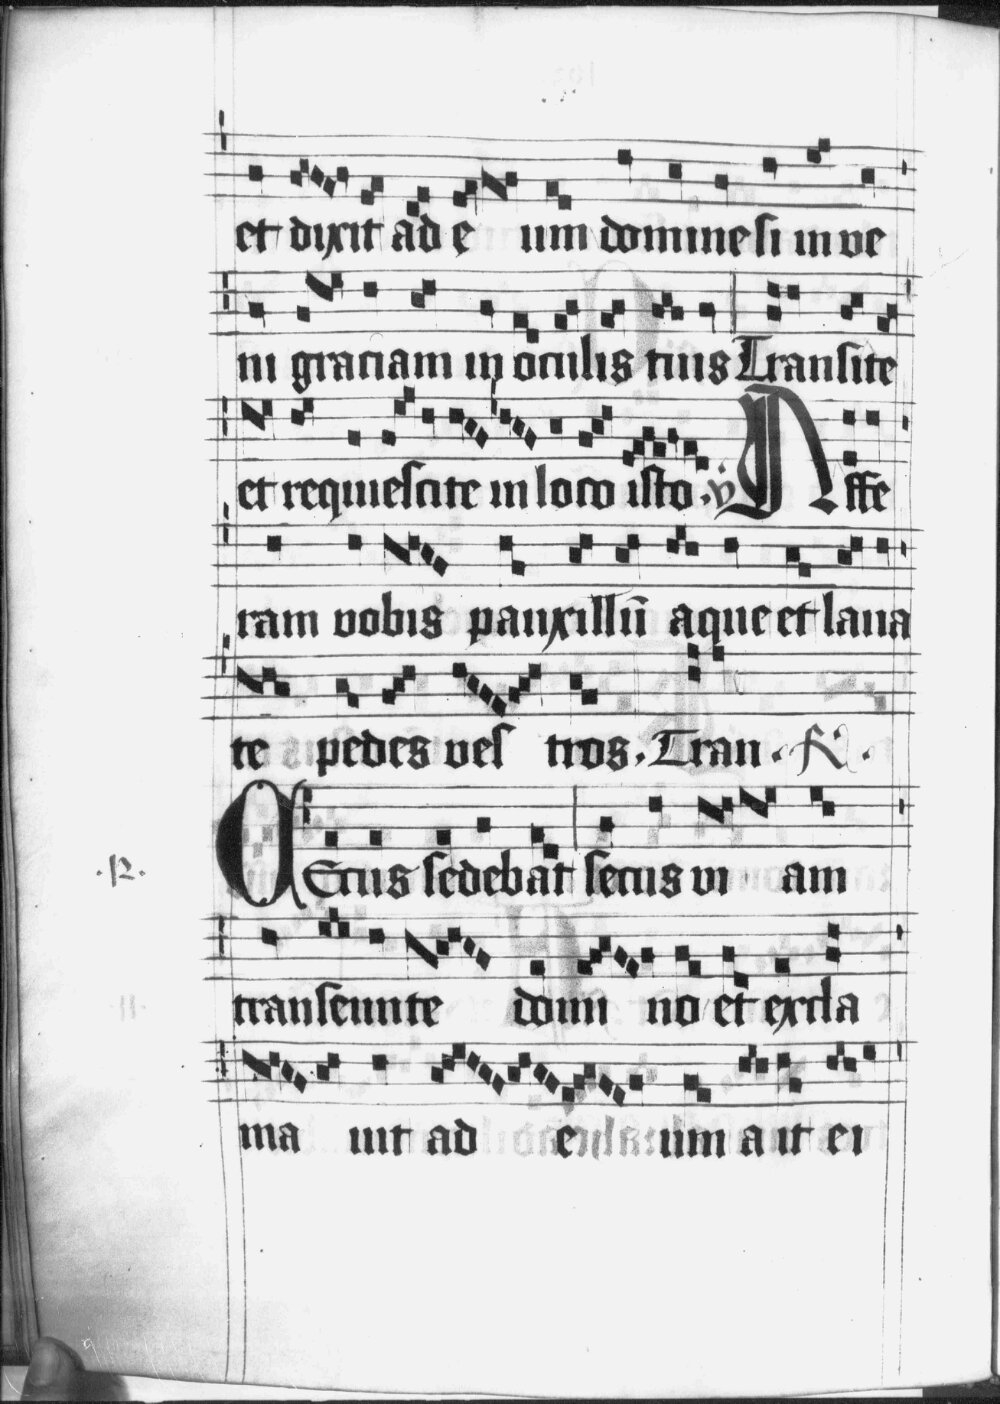 et dixit ad e um domine si in ve
ni graciam in oculis tuis Transite
et requiescite in loco isto . v Affe
ram vobis pauxillū aque et laua
te pedes ves tros . Tran .
.R. Cecus sedebat secus vi am
transeunte domi no et excla
ma uit ad e um a it ei